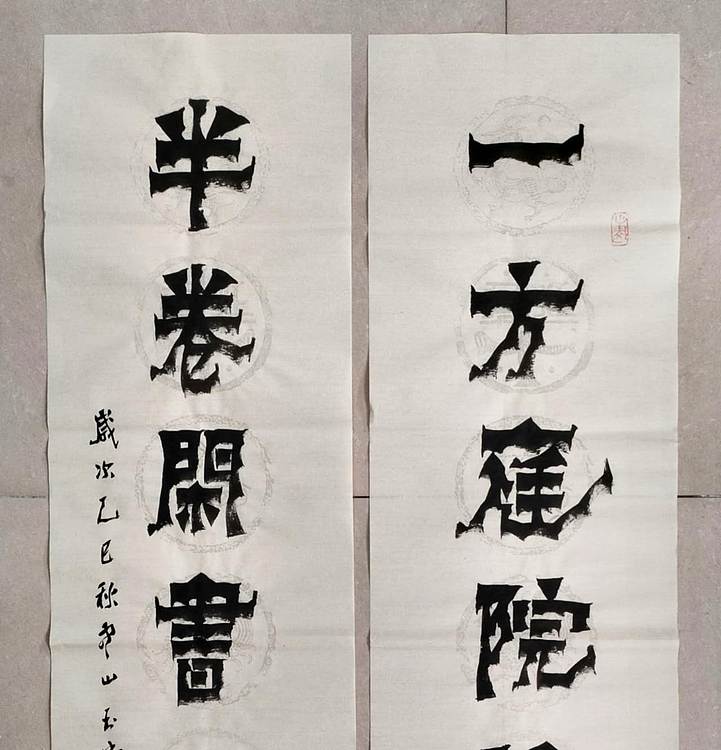 一方庭院
半卷閑書
歲次乙巳秋
山玉